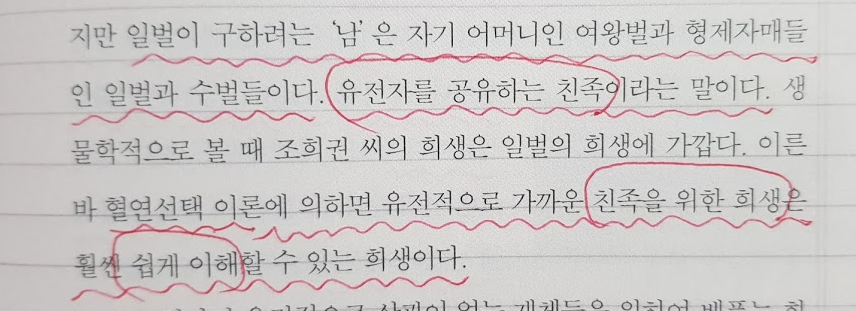 지만 일벌이 구하려는 ‘남’은 자기 어머니인 여왕벌과 형제자매들
인 일벌과 수벌들이다. 유전자를 공유하는 친족이라는 말이다. 생
물학적으로 볼 때 조희권 씨의 희생은 일벌의 희생에 가깝다. 이른
바 혈연선택 이론에 의하면 유전적으로 가까운 친족을 위한 희생은
훨씬 쉽게 이해할 수 있는 희생이다.